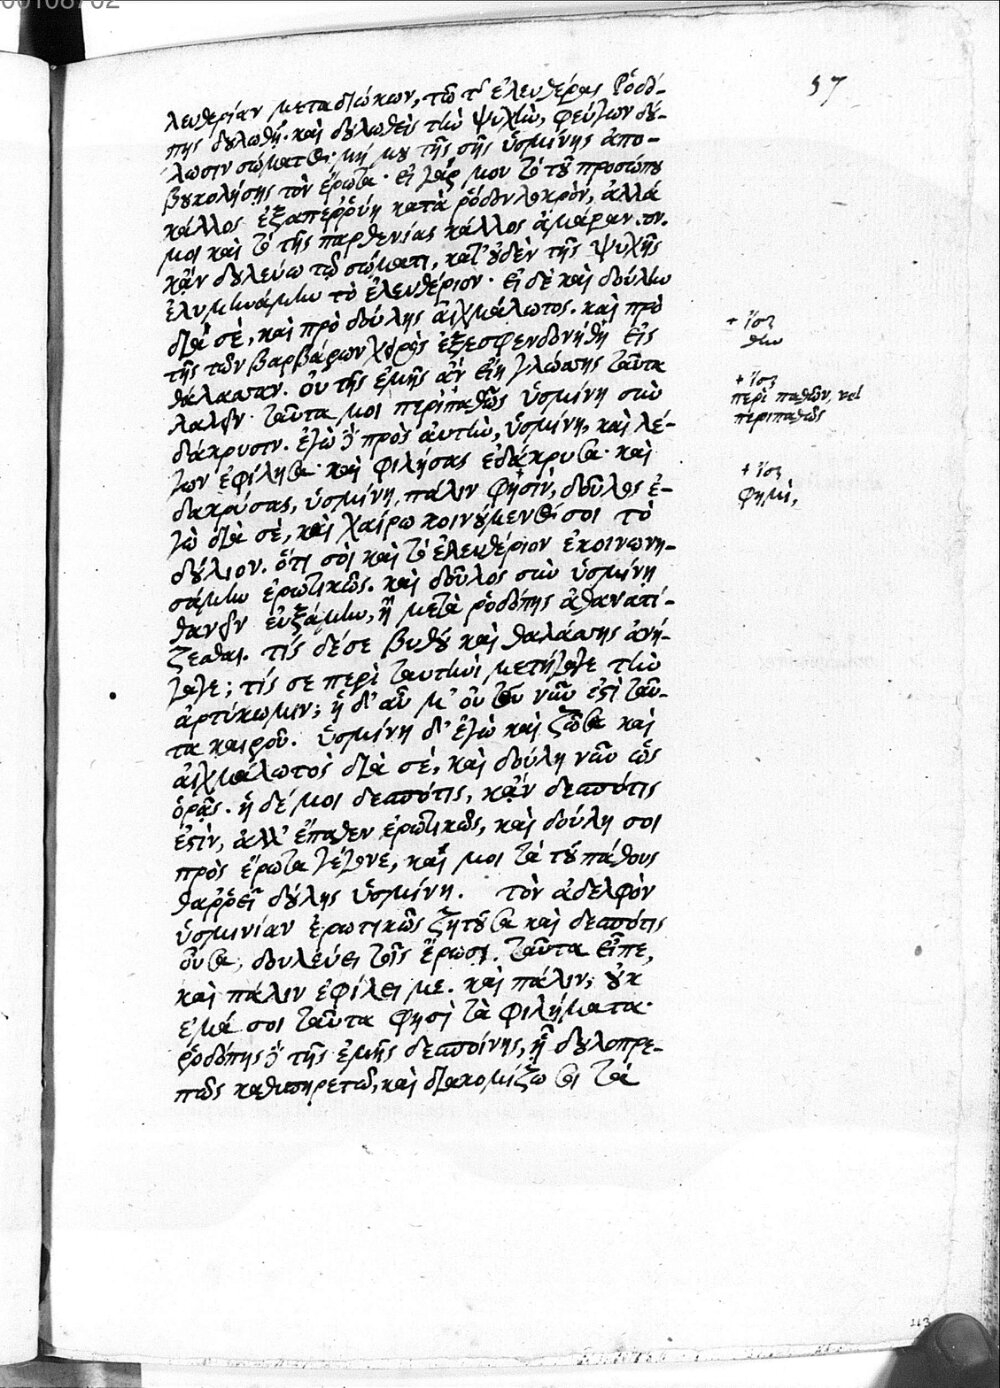 57
λευθερίαν μεταδιώκων, τῶ τ' ἐλευθέρας Ῥοδό-
πης δουλωθῇ. καὶ δουλωθεὶς τὴν ψυχὴν, φεύγων δού-
λωσιν σώματος· μή μου τῆς σῆς ὑσμίνης ἀπο-
βουκολήσῃς τὸν ἔρωτα· εἰ γάρ μου τὸ τοῦ προσώπου
κάλλος ἐξαπερρύη κατὰ ῥόδον λοκρὸν, ἀλλά
μοι καὶ τὸ τῆς παρθενίας κάλλος ἀμάραντον.
κἂν δουλεύω τῷ σώματι, κατ' οὐδὲν τῆς ψυχῆς
ἐλυμηνάμην τὸ ἐλευθέριον· εἰ δὲ καὶ δούλην
διὰ σὲ, καὶ πρὸ δούλης αἰχμάλωτος. καὶ πρὸ
τῆς τῶν βαρβάρων χειρὸς ἐξεσφενδονήθη εἰς
θάλασσαν. οὐ τῆς ἐμῆς ἂν εἴη γλώσσης ταῦτα
λαλεῖν· ταῦτα μοι περιπαθῶς ὑσμίνη σὺν
δάκρυσιν. ἐγὼ δὲ πρὸς αὐτὴν, ὑσμίνη, καὶ λέ-
γων ἐφίλησα· καὶ φιλήσας ἐδάκρυσα· καὶ
δακρύσας, ὑσμίνη, πάλιν φησὶν, δοῦλος ἐ-
γὼ διὰ σὲ, καὶ χαίρω κοινούμενός σοι τὸ
δούλιον. ὅτι σοὶ καὶ τὸ ἐλευθέριον ἐκοινωνη-
σάμην ἐρωτικῶς. καὶ δοῦλος σὺν ὑσμίνη
θανεῖν εὐξάμην, ἢ μετὰ ῥοδόπης ἀθανατί-
ζεσθαι. τίς δέ σε βυθοῦ καὶ θαλάσσης ἀνή-
γαγε; τίς σε περὶ ταυτηνὶ μετήγαγε τὴν
ἀρτύκωμιν; ἡ δ' αὖ μ' οὐ τοῦ νῦν ἐστὶ ταῦ-
τα καιροῦ. ὑσμίνη δ' ἐγὼ καὶ ζῶσα καὶ
αἰχμάλωτὸς διὰ σὲ, καὶ δούλη νῦν ὡς
ὁρᾷς. ἡ δέ μοι δεσπότις, κἂν δεσπότις
ἐστὶν, ἀλλ' ἔπαθεν ἐρωτικῶς, καὶ δούλη σοι
πρὸς ἔρωτα γέγονε, καὶ μοι τὰ τοῦ πάθους
θαρρεῖ δούλης ὑσμίνη. τὸν ἀδελφὸν
ὑσμινίαν ἐρωτικῶς ζητοῦσα καὶ δεσπότις
οὖσα, δουλεύει τοῖς ἔρωσι. ταῦτα εἶπε,
καὶ πάλιν ἐφίλει με. καὶ πάλιν, οὐκ
ἐμά σοι ταῦτα φησὶ τὰ φιλήματα·
ῥοδόπης δὲ τῆς ἐμῆς δεσποίνης, ᾗ δουλοπρε-
πῶς καθυπηρετῶ, καὶ διακομίζω σοι τὰ
+ ἴσ
θην
+ ἴσ
περὶ παθῶν, vel
περιπαθῶς
+ ἴσ
φημὶ,
113